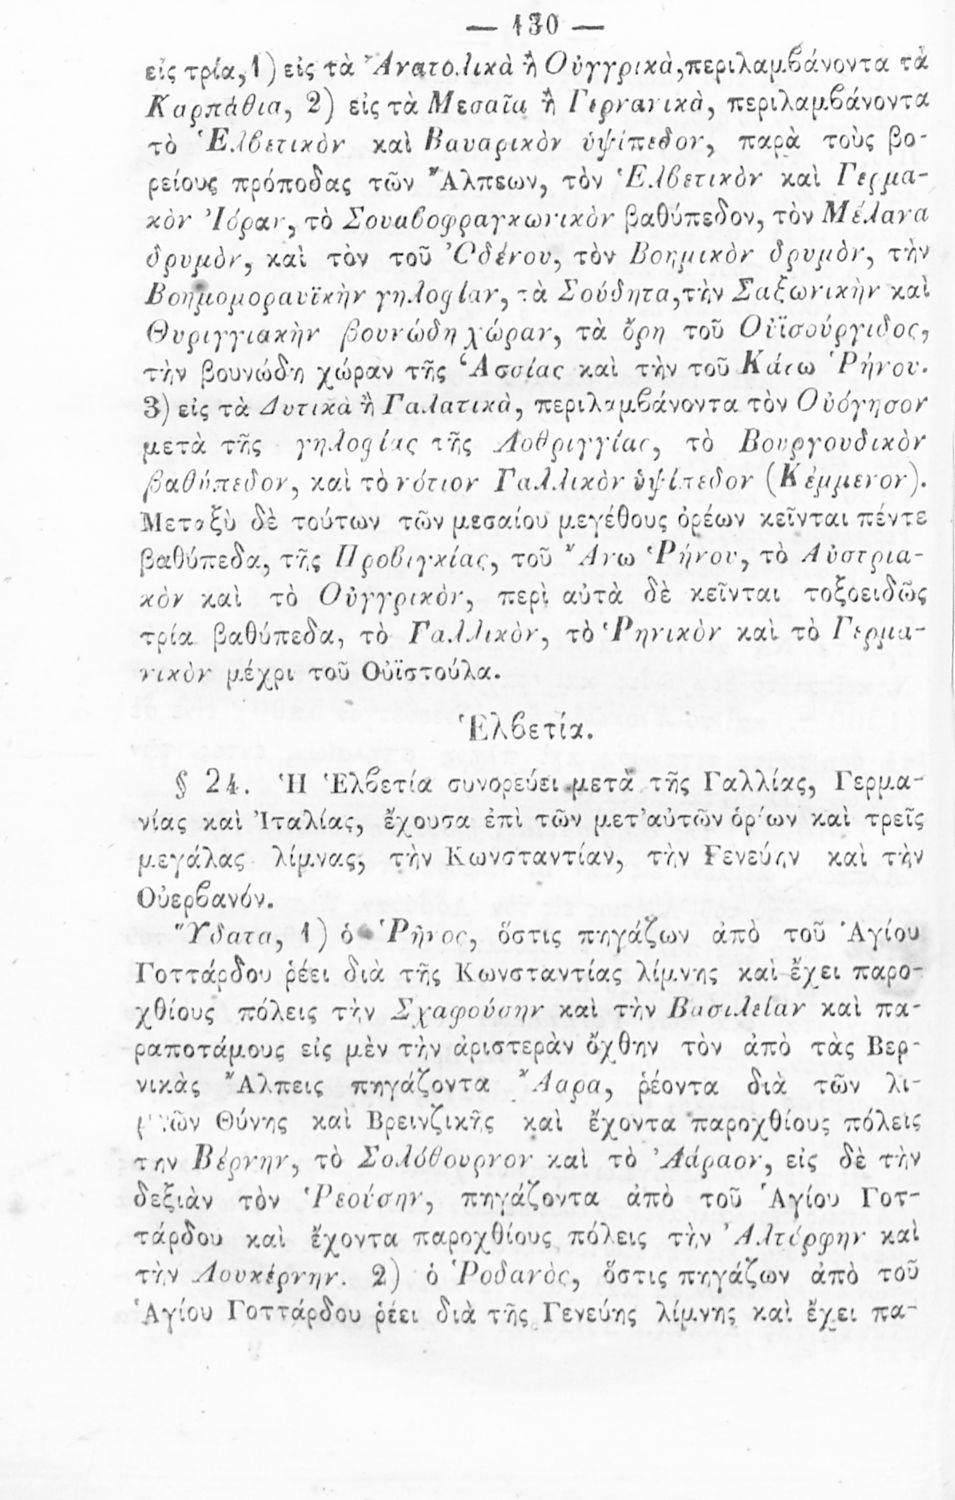 — 130 —
εἰς τρία, 1) εἰς τὰ Ἀνατολικὰ ἢ Οὐγγρικὰ, περιλαμβάνοντα τὰ
Καρπάθια, 2) εἰς τὰ Μεσαῖα ἢ Γερμανικὰ, περιλαμβάνοντα
τὸ Ἑλβετικὸν καὶ Βαυαρικὸν ὑψίπεδον, παρὰ τοὺς βο-
ρείους πρόποδας τῶν Ἄλπεων, τὸν Ἑλβετικὸν καὶ Γερμα-
κὸν Ἰόραν, τὸ Σουαβοφραγκωνικὸν βαθύπεδον, τὸν Μέλανα
δρυμὸν, καὶ τὸν τοῦ Ὀδένου, τὸν Βοημικὸν δρυμὸν, τὴν
Βοημομοραυϊκὴν γηλοφίαν, τὰ Σούδητα, τὴν Σαξωνικὴν καὶ
Θυριγγιακὴν βουνώδη χώραν, τὰ ὄρη τοῦ Οὐϊσούργιδος,
τὴν βουνώδη χώραν τῆς Ἁσσίας καὶ τὴν τοῦ Κάτω Ῥήνου.
3) εἰς τὰ Δυτικὰ ἢ Γαλατικὰ, περιλαμβάνοντα τὸν Οὐόγησον
μετὰ τῆς γηλοφίας τῆς Λοθριγγίας, τὸ Βουργουδικὸν
βαθύπεδον, καὶ τὸ νότιον Γαλλικὸν ὑψίπεδον (Κέμμενον).
Μεταξὺ δὲ τούτων τῶν μεσαίου μεγέθους ὀρέων κεῖνται πέντε
βαθύπεδα, τῆς Προβιγκίας, τοῦ Ἄνω Ῥήνου, τὸ Αὐστρια-
κὸν καὶ τὸ Οὐγγρικὸν, περὶ αὐτὰ δὲ κεῖνται τοξοειδῶς
τρία βαθύπεδα, τὸ Γαλλικὸν, τὸ Ῥηνικὸν καὶ τὸ Γερμα-
νικὸν μέχρι τοῦ Οὐϊστούλα.
Ἑλβετία.
§ 24. Ἡ Ἑλβετία συνορεύει μετὰ τῆς Γαλλίας, Γερμα-
νίας καὶ Ἰταλίας, ἔχουσα ἐπὶ τῶν μετ' αὐτῶν ὁρίων καὶ τρεῖς
μεγάλας λίμνας, τὴν Κωνσταντίαν, τὴν Γενεύην καὶ τὴν
Οὐερβανόν.
Ὕδατα, 1) ὁ Ῥῆνος, ὅστις πηγάζων ἀπὸ τοῦ Ἁγίου
Γοττάρδου ῥέει διὰ τῆς Κωνσταντίας λίμνης καὶ ἔχει παρο-
χθίους πόλεις τὴν Σχαφούσην καὶ τὴν Βασιλείαν καὶ πα-
ραποτάμους εἰς μὲν τὴν ἀριστερὰν ὄχθην τὸν ἀπὸ τὰς Βερ-
νικὰς Ἄλπεις πηγάζοντα Ἄαρα, ῥέοντα διὰ τῶν λι-
μνῶν Θύνης καὶ Βρεινζικῆς καὶ ἔχοντα παροχθίους πόλεις
τὴν Βέρνην, τὸ Σολόθουρνον καὶ τὸ Ἀάραον, εἰς δὲ τὴν
δεξιὰν τὸν Ῥεούσην, πηγάζοντα ἀπὸ τοῦ Ἁγίου Γοτ-
τάρδου καὶ ἔχοντα παροχθίους πόλεις τὴν Ἀλτόρφην καὶ
τὴν Λουκέρνην. 2) ὁ Ῥοδανὸς, ὅστις πηγάζων ἀπὸ τοῦ
Ἁγίου Γοττάρδου ῥέει διὰ τῆς Γενεύης λίμνης καὶ ἔχει πα-